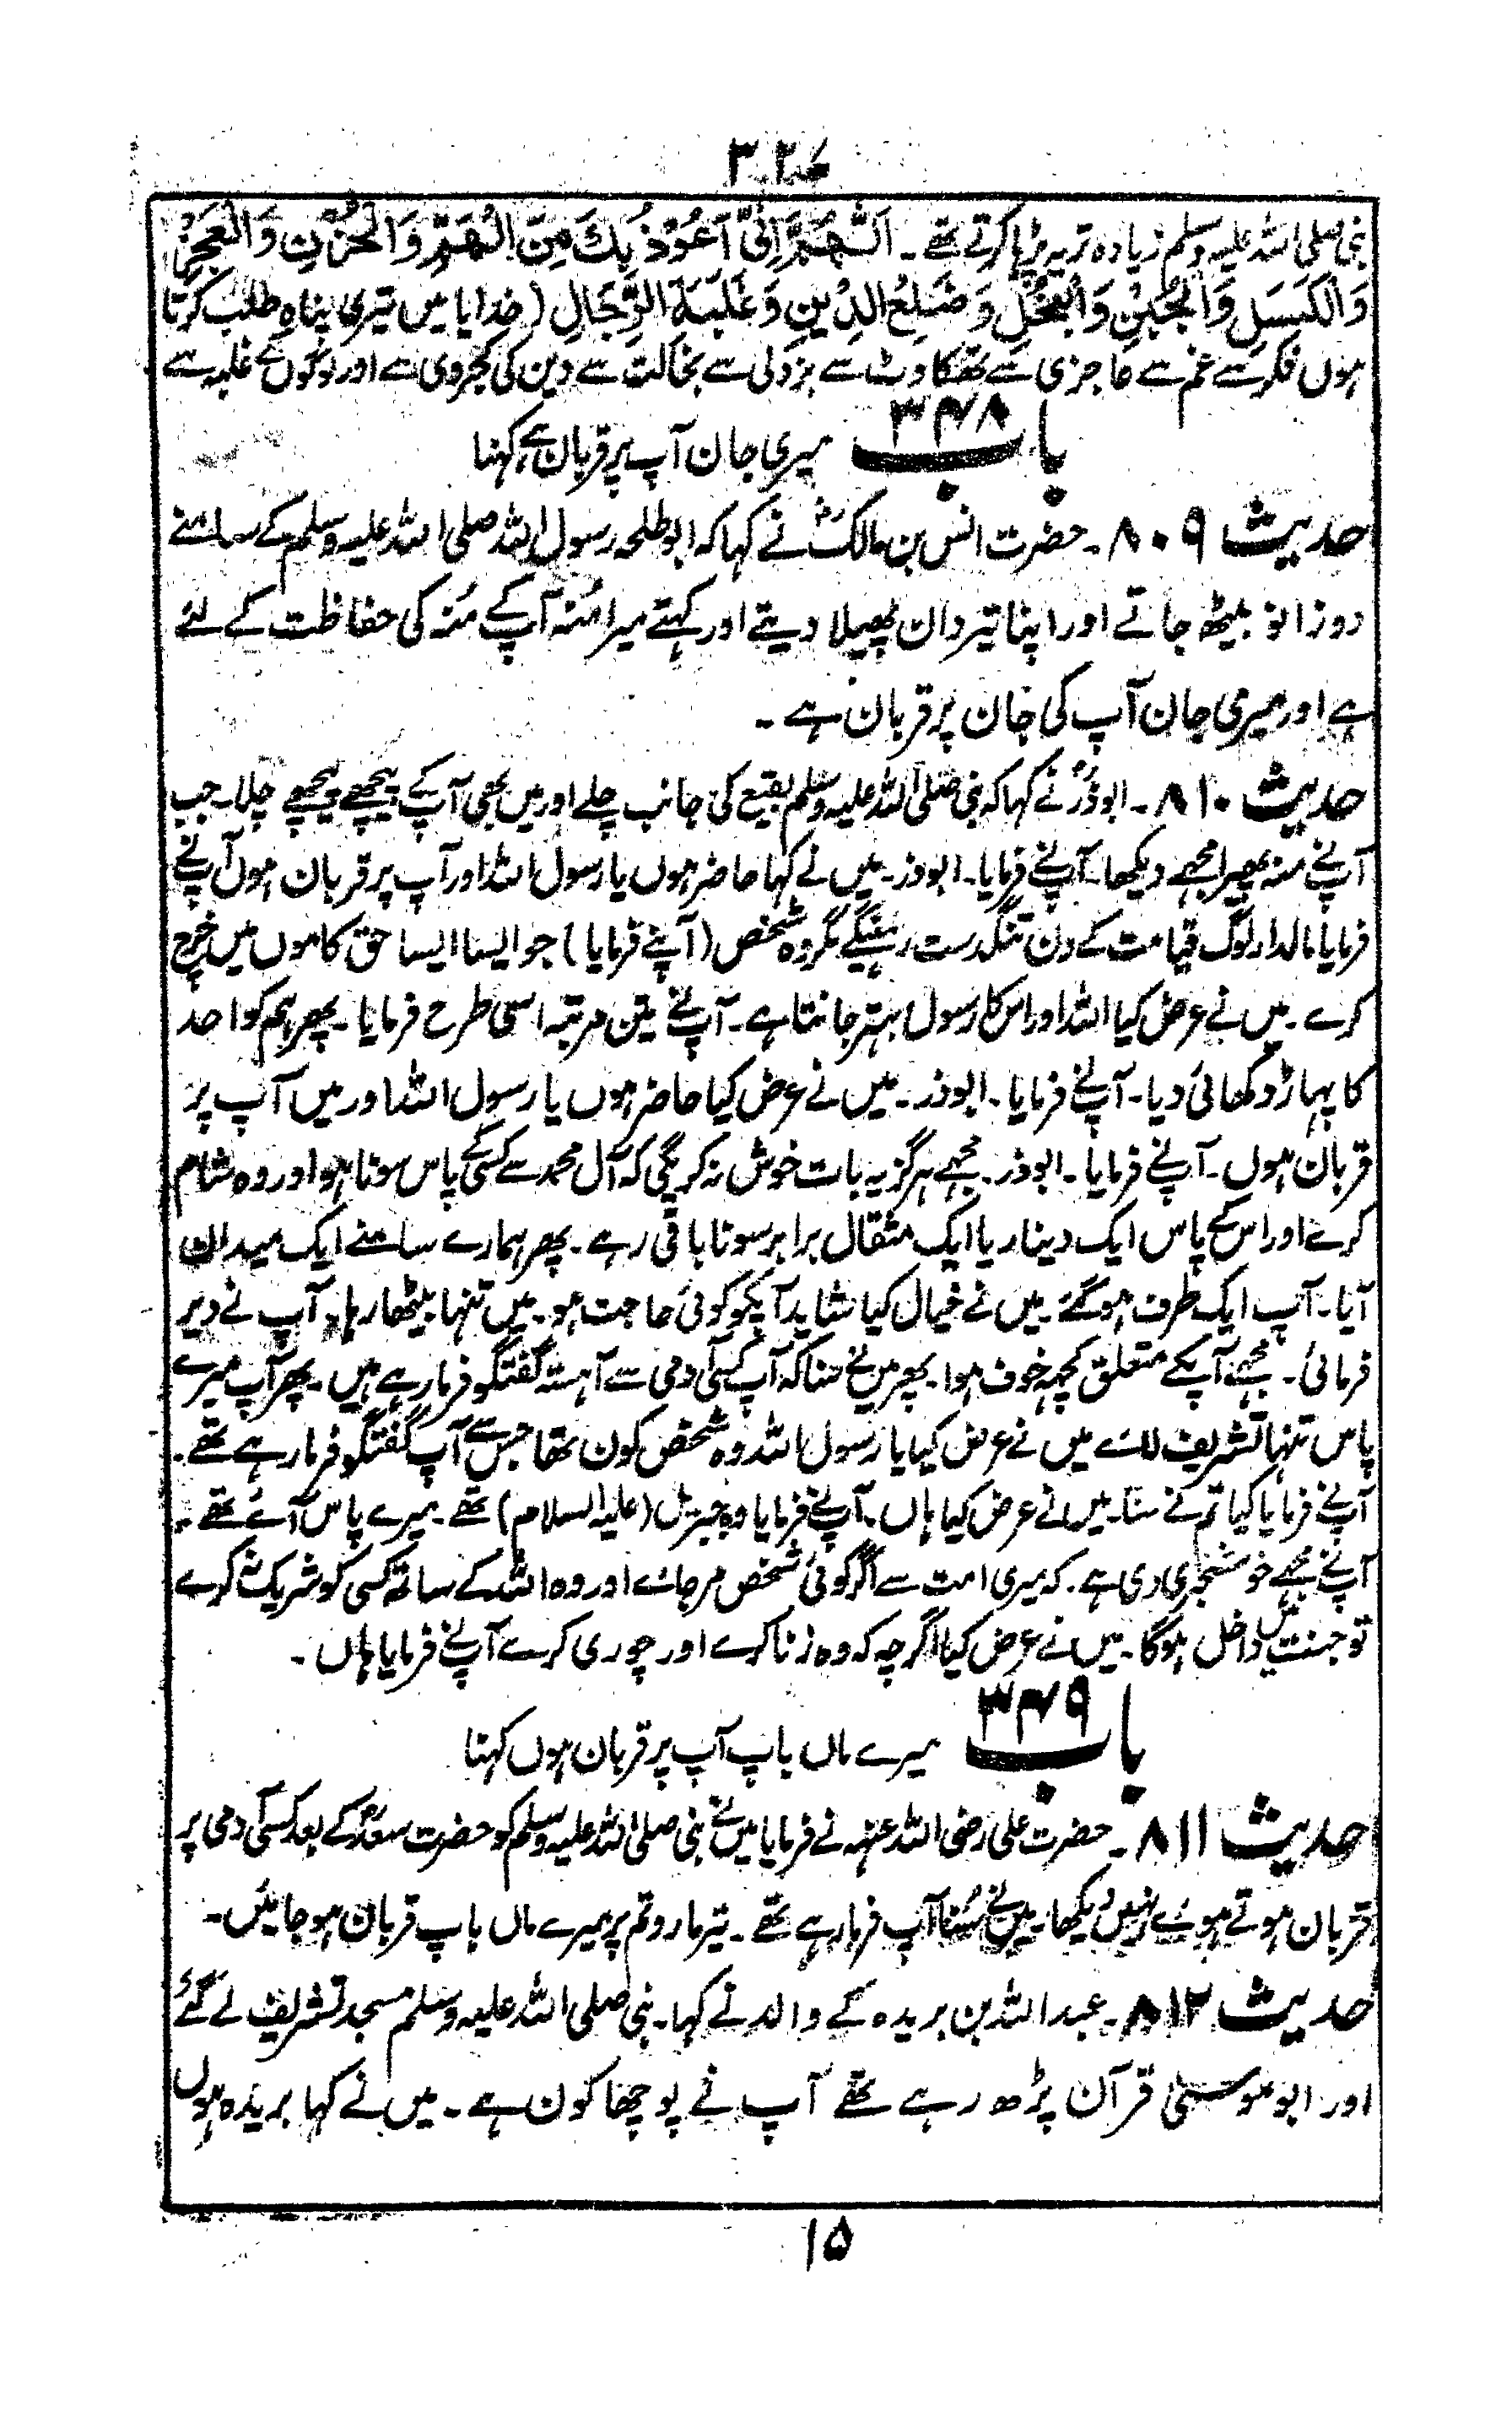 ۳۲۷
نبی صلی اللہ علیہ وسلم زیادہ تر یہ پڑہا کرتے تھے ۔ اَللّٰهُمَّ اِنِّیْ اَعُوْذُ بِكَ مِنَ الْهَمِّ وَالْحُزْنِ وَالْعَجْزِ
وَالْكَسَلِ وَالْجُبْنِ وَالْبُخْلِ وَضَلَعِ الدِّيْنِ وَغَلَبَةِ الرِّجَالِ (خدایا میں تیری پناہ طلب کرتا
ہوں فکر سے غم سے عاجزی سے تھکاوٹ سے بزدلی سے بخالت سے دین کی کجروی سے اور لوگوں کے غلبہ سے
باب ۳۴۸ میری جان آپ پر قربان ہے، کہنا
حدیث ۸۰۹ ۔ حضرت انس بن مالکؓ نے کہا کہ ابوطلحہ رسول اللہ صلی اللہ علیہ وسلم کے سامنے
دوزانو بیٹھ جاتے اور اپنا تیردان پھیلا دیتے اور کہتے میرا مُنہ آپ کے مُنہ کی حفاظت کے لئے
ہے اور میری جان آپ کی جان پر قربان ہے ۔
حدیث ۸۱۰ ۔ ابوذرؓ نے کہا کہ نبی صلی اللہ علیہ وسلم بقیع کی جانب چلے اور میں بھی آپ کے پیچھے پیچھے چلا ۔ جب
آپنے منہ پھیرا مجھے دیکھا ۔ آپنے فرمایا ۔ ابوذر ۔ میں نے کہا حاضر ہوں یا رسول اللہ اور آپ پر قربان ہوں آپنے
فرمایا مالدار لوگ قیامت کے دن تنگدست رہینگے مگر وہ شخص (آپنے فرمایا) جو ایسا ایسا حق کاموں میں خرچ
کرے ۔ میں نے عرض کیا اللہ اور اس کا رسول بہتر جانتا ہے ۔ آپنے تین مرتبہ اسی طرح فرمایا ۔ پھر ہم کو احد
کا پہاڑ دکھائی دیا ۔ آپنے فرمایا ۔ ابوذر ۔ میں نے عرض کیا حاضر ہوں یا رسول اللہ اور میں آپ پر
قربان ہوں ۔ آپنے فرمایا ۔ ابوذر ۔ مجھے ہرگز یہ بات خوش نہ کریگی کہ آل محمد سے کسی کے پاس سونا ہو اور وہ شام
کرے اور اس کے پاس ایک دینار یا ایک مثقال برابر سونا باقی رہے ۔ پھر ہمارے سامنے ایک میدان
آیا ۔ آپ ایک طرف ہو گئے ۔ میں نے خیال کیا شاید آپکو کوئی حاجت ہو ۔ میں تنہا بیٹھا رہا ۔ آپ نے دیر
فرمائی ۔ مجھے آپکے متعلق کچھ خوف ہوا ۔ پھر میں نے سنا کہ آپ کسی آدمی سے آہستہ گفتگو فرما رہے ہیں ۔ پھر آپ میرے
پاس تنہا تشریف لائے میں نے عرض کیا یا رسول اللہ وہ شخص کون تھا جس سے آپ گفتگو فرما رہے تھے ۔
آپنے فرمایا کیا تم نے سنا ۔ میں نے عرض کیا ہاں ۔ آپنے فرمایا وہ جبریل (علیہ السلام) تھے ۔ میرے پاس آئے تھے ۔
آپنے مجھے خوشخبری دی ہے ۔ کہ میری امت سے اگر کوئی شخص مر جائے اور وہ اللہ کے ساتھ کسی کو شریک نہ کرے
تو جنت میں داخل ہوگا ۔ میں نے عرض کیا اگرچہ کہ وہ زنا کرے اور چوری کرے آپنے فرمایا ہاں ۔
باب ۳۴۹ میرے ماں باپ آپ پر قربان ہوں کہنا
حدیث ۸۱۱ ۔ حضرت علی رضی اللہ عنہ نے فرمایا میں نے نبی صلی اللہ علیہ وسلم کو حضرت سعدؓ کے بعد کسی آدمی پر
قربان ہوتے ہوئے نہیں دیکھا ۔ میں نے سُنا آپ فرما رہے تھے ۔ تیر مارو تم پر میرے ماں باپ قربان ہو جائیں ۔
حدیث ۸۱۲ ۔ عبداللہ بن بریدہ کے والد نے کہا ۔ نبی صلی اللہ علیہ وسلم مسجد تشریف لے گئے
اور ابو موسیٰ قرآن پڑھ رہے تھے آپ نے پوچھا کون ہے ۔ میں نے کہا بریدہ ہوں
۱۵